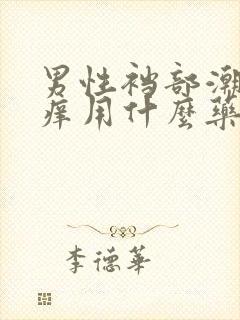 男性裆部潮
痒用什麼藥
李德華